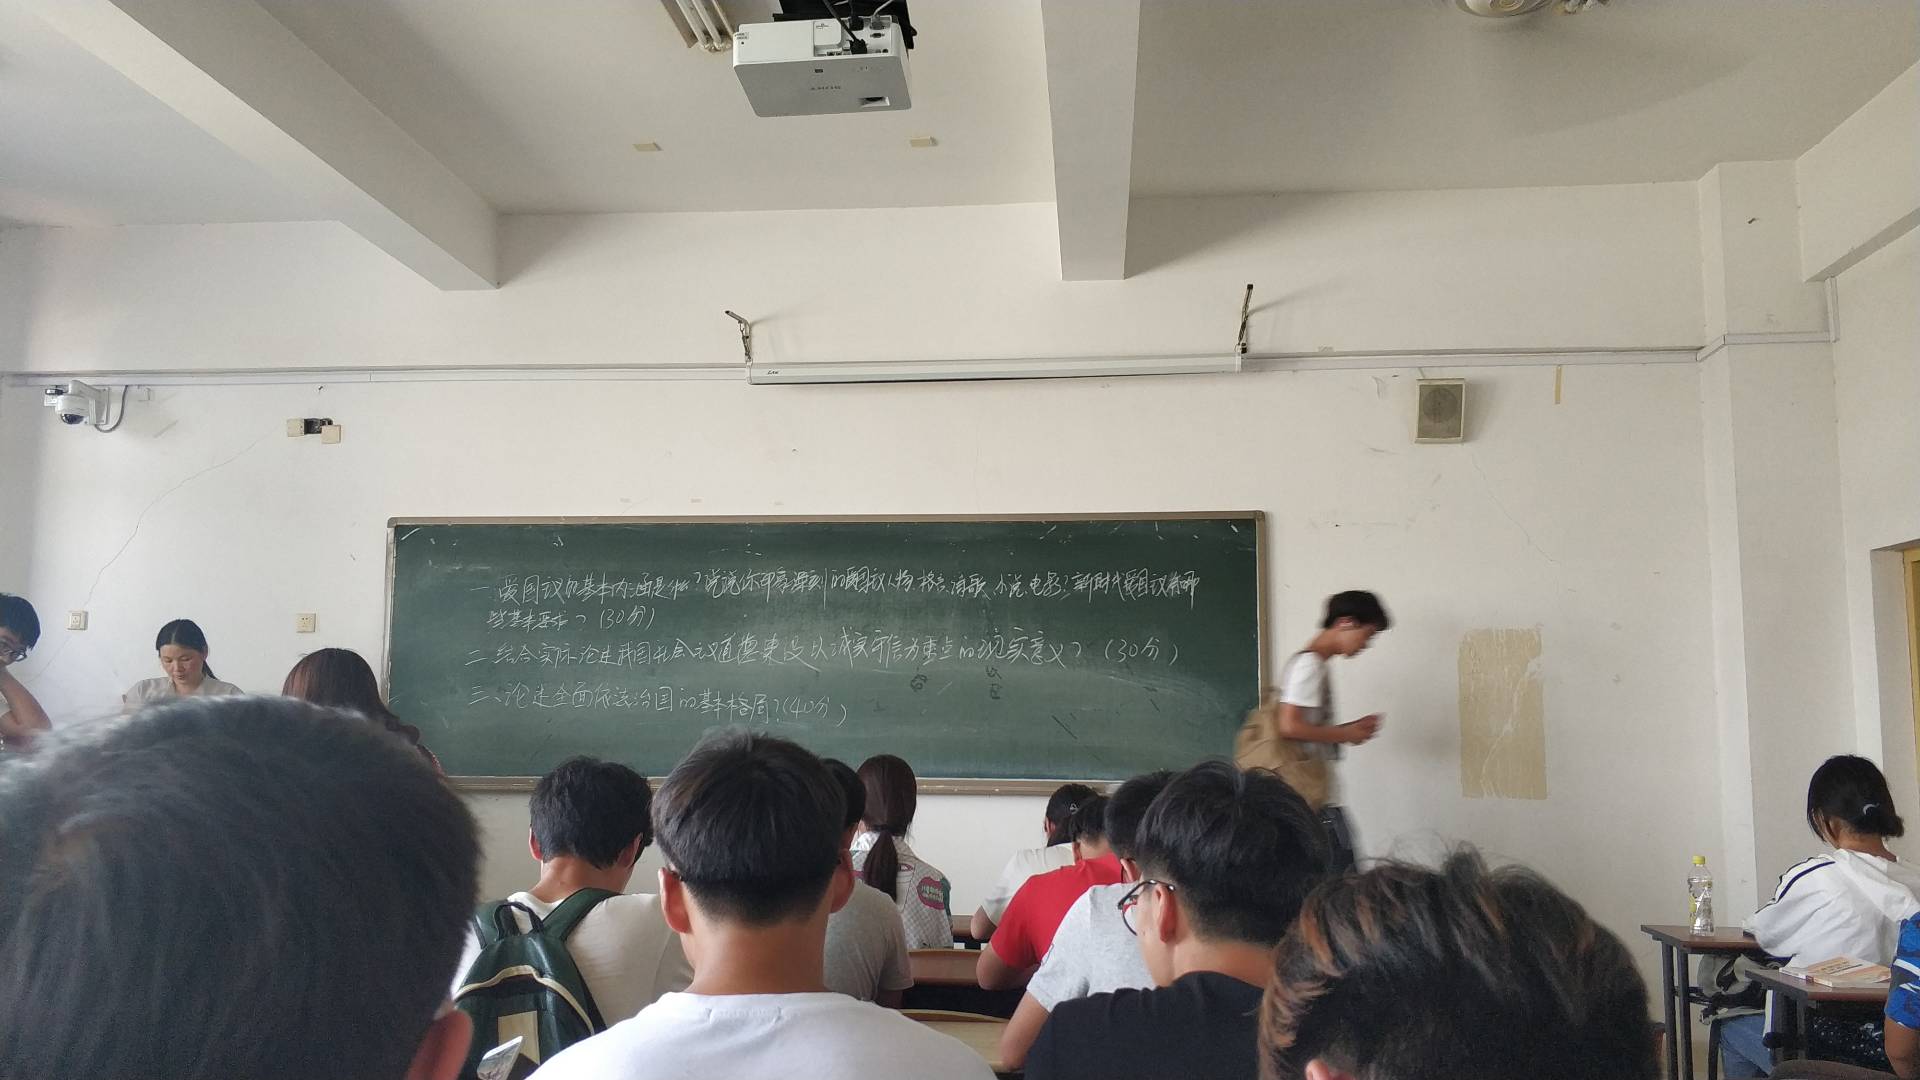 SONY
一、爱国主义的基本内涵是什么?说说你印象深刻的爱国主义人物、格言、诗歌、小说、电影?新时代爱国主义有哪
些基本要求?(30分)
二、结合实际论述我国社会主义道德建设以诚实守信为重点的现实意义?(30分)
三、论述全面依法治国的基本格局?(40分)